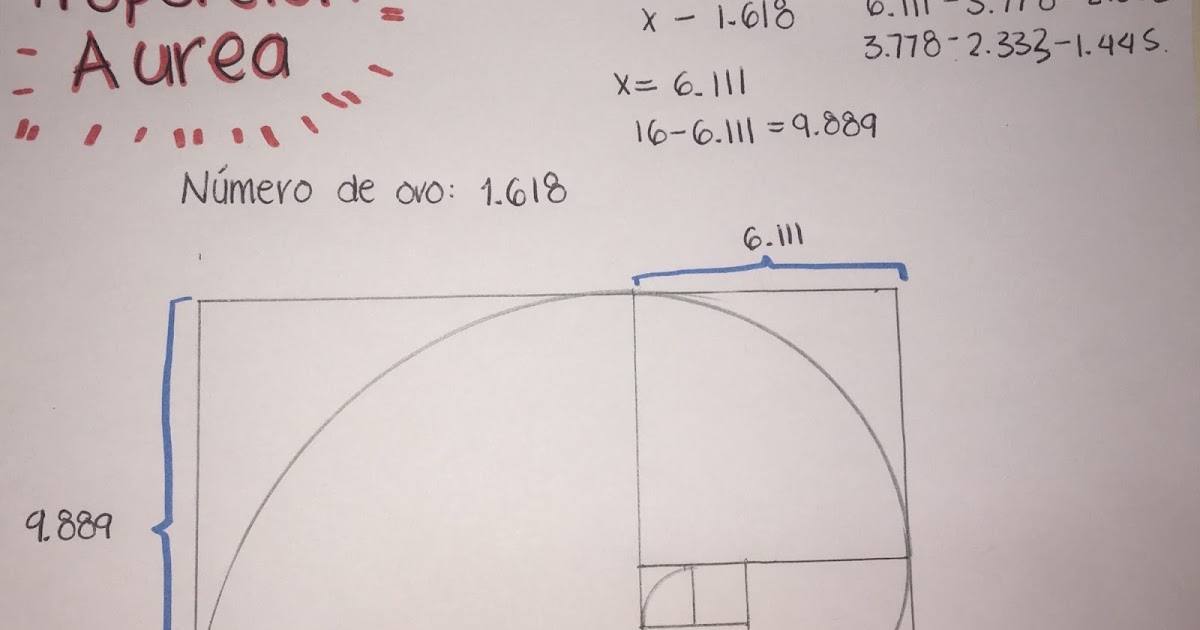 Proporción
Aurea
x - 1.618
x = 6.111
16-6.111 = 9.889
3.778-2.333-1.445.
Número de oro: 1.618
6.111
9.889